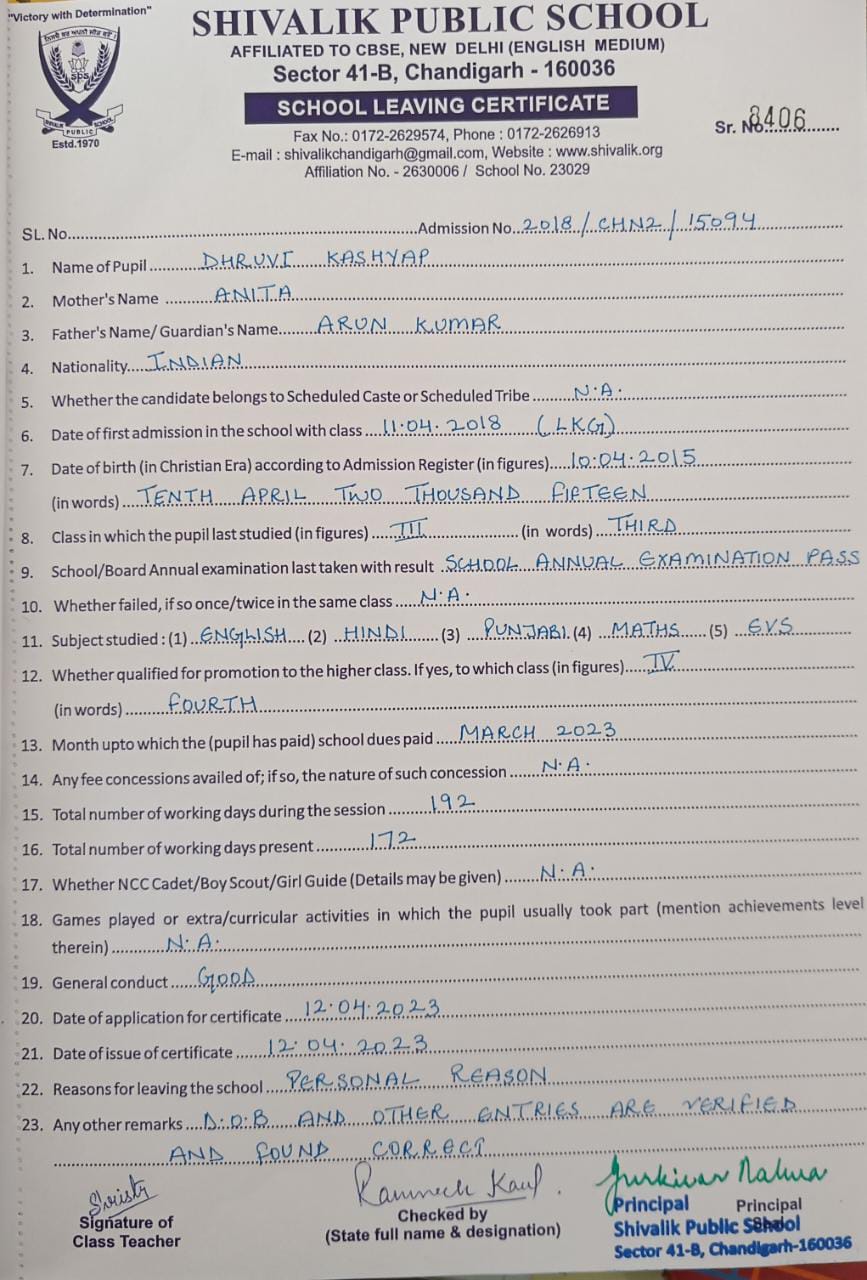 "Victory with Determination"
SHIVALIK PUBLIC SCHOOL
AFFILIATED TO CBSE, NEW DELHI (ENGLISH MEDIUM)
Sector 41-B, Chandigarh - 160036
SCHOOL LEAVING CERTIFICATE
sps
SHIVALIK PUBLIC SCHOOL
Estd.1970
Fax No.: 0172-2629574, Phone : 0172-2626913
Sr. No. 8406
E-mail : shivalikchandigarh@gmail.com, Website : www.shivalik.org
Affiliation No. - 2630006 / School No. 23029
SL. No. Admission No. 2018/CHN2/15094
1. Name of Pupil DHRUVI KASHYAP
2. Mother's Name ANITA
3. Father's Name/ Guardian's Name ARUN KUMAR
4. Nationality INDIAN
5. Whether the candidate belongs to Scheduled Caste or Scheduled Tribe N.A.
6. Date of first admission in the school with class 11.04.2018 (LKG)
7. Date of birth (in Christian Era) according to Admission Register (in figures) 10.04.2015
(in words) TENTH APRIL TWO THOUSAND FIFTEEN
8. Class in which the pupil last studied (in figures) III (in words) THIRD
9. School/Board Annual examination last taken with result SCHOOL ANNUAL EXAMINATION PASS
10. Whether failed, if so once/twice in the same class N.A.
11. Subject studied : (1) ENGLISH (2) HINDI (3) PUNJABI (4) MATHS (5) EVS
12. Whether qualified for promotion to the higher class. If yes, to which class (in figures) IV
(in words) FOURTH
13. Month upto which the (pupil has paid) school dues paid MARCH 2023
14. Any fee concessions availed of; if so, the nature of such concession N.A.
15. Total number of working days during the session 192
16. Total number of working days present 172
17. Whether NCC Cadet/Boy Scout/Girl Guide (Details may be given) N.A.
18. Games played or extra/curricular activities in which the pupil usually took part (mention achievements level
therein) N.A.
19. General conduct GOOD
20. Date of application for certificate 12.04.2023
21. Date of issue of certificate 12.04.2023
22. Reasons for leaving the school PERSONAL REASON
23. Any other remarks D.O.B AND OTHER ENTRIES ARE VERIFIED
AND FOUND CORRECT
Signature of
Class Teacher
Checked by
(State full name & designation)
Principal
Principal
Shivalik Public School
Sector 41-B, Chandigarh-160036